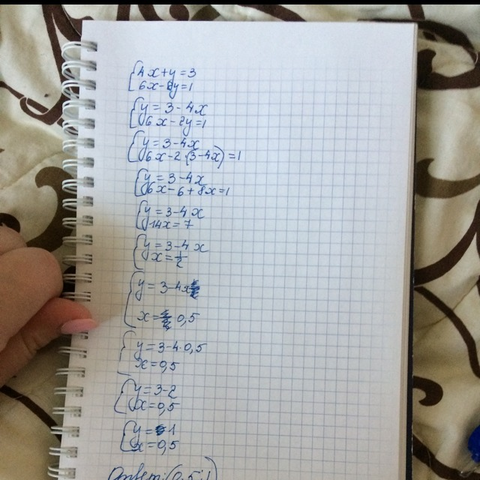 4x+y=3
6x-2y=1
y=3-4x
6x-2y=1
y=3-4x
6x-2(3-4x)=1
y=3-4x
6x-6+8x=1
y=3-4x
14x=7
y=3-4x
x=1/2
y=3-4x
x=0,5
y=3-4·0,5
x=0,5
y=3-2
x=0,5
y=1
x=0,5
Ответ:(0,5;1)